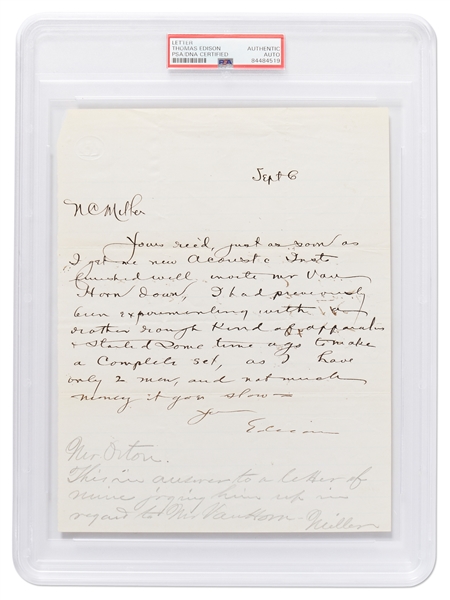 LETTER
THOMAS EDISON
PSA/DNA CERTIFIED
AUTHENTIC
AUTO
PSA
84484519
Sept 6
N C Miller
Yours rec'd, just as soon as
I get me new Acoustic Inst
finished will invite Mr Van
Horn Down, I had previously
been experimenting with a
rather rough kind of apparatus
& started some time ago to make
a complete set, as I have
only 2 men, and not much
money it goes slow—
Edison
Mr Orton.
This in answer to a letter of
mine jogging him up in
regard to Mr Van Horn - Miller